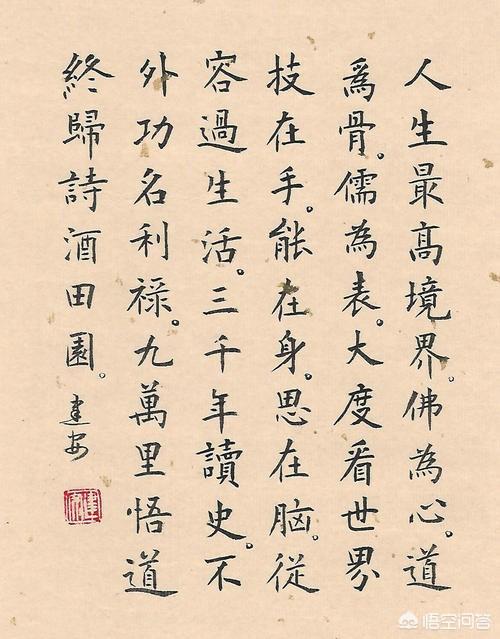 人生最高境界。佛為心。道
為骨。儒為表。大度看世界
技在手。能在身。思在脑。従
容過生活。三千年讀史。不
外功名利禄。九萬里悟道
終歸詩酒田園。建安
悟空问答